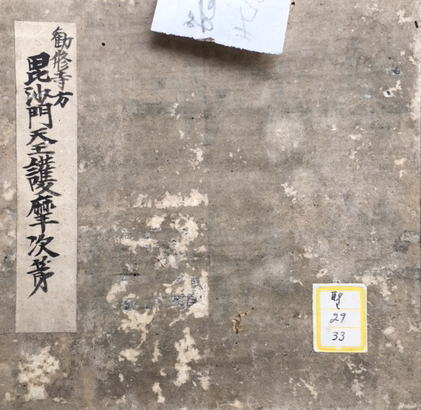 勧修寺方
毘沙門天王護摩次㐧
聖
29
33